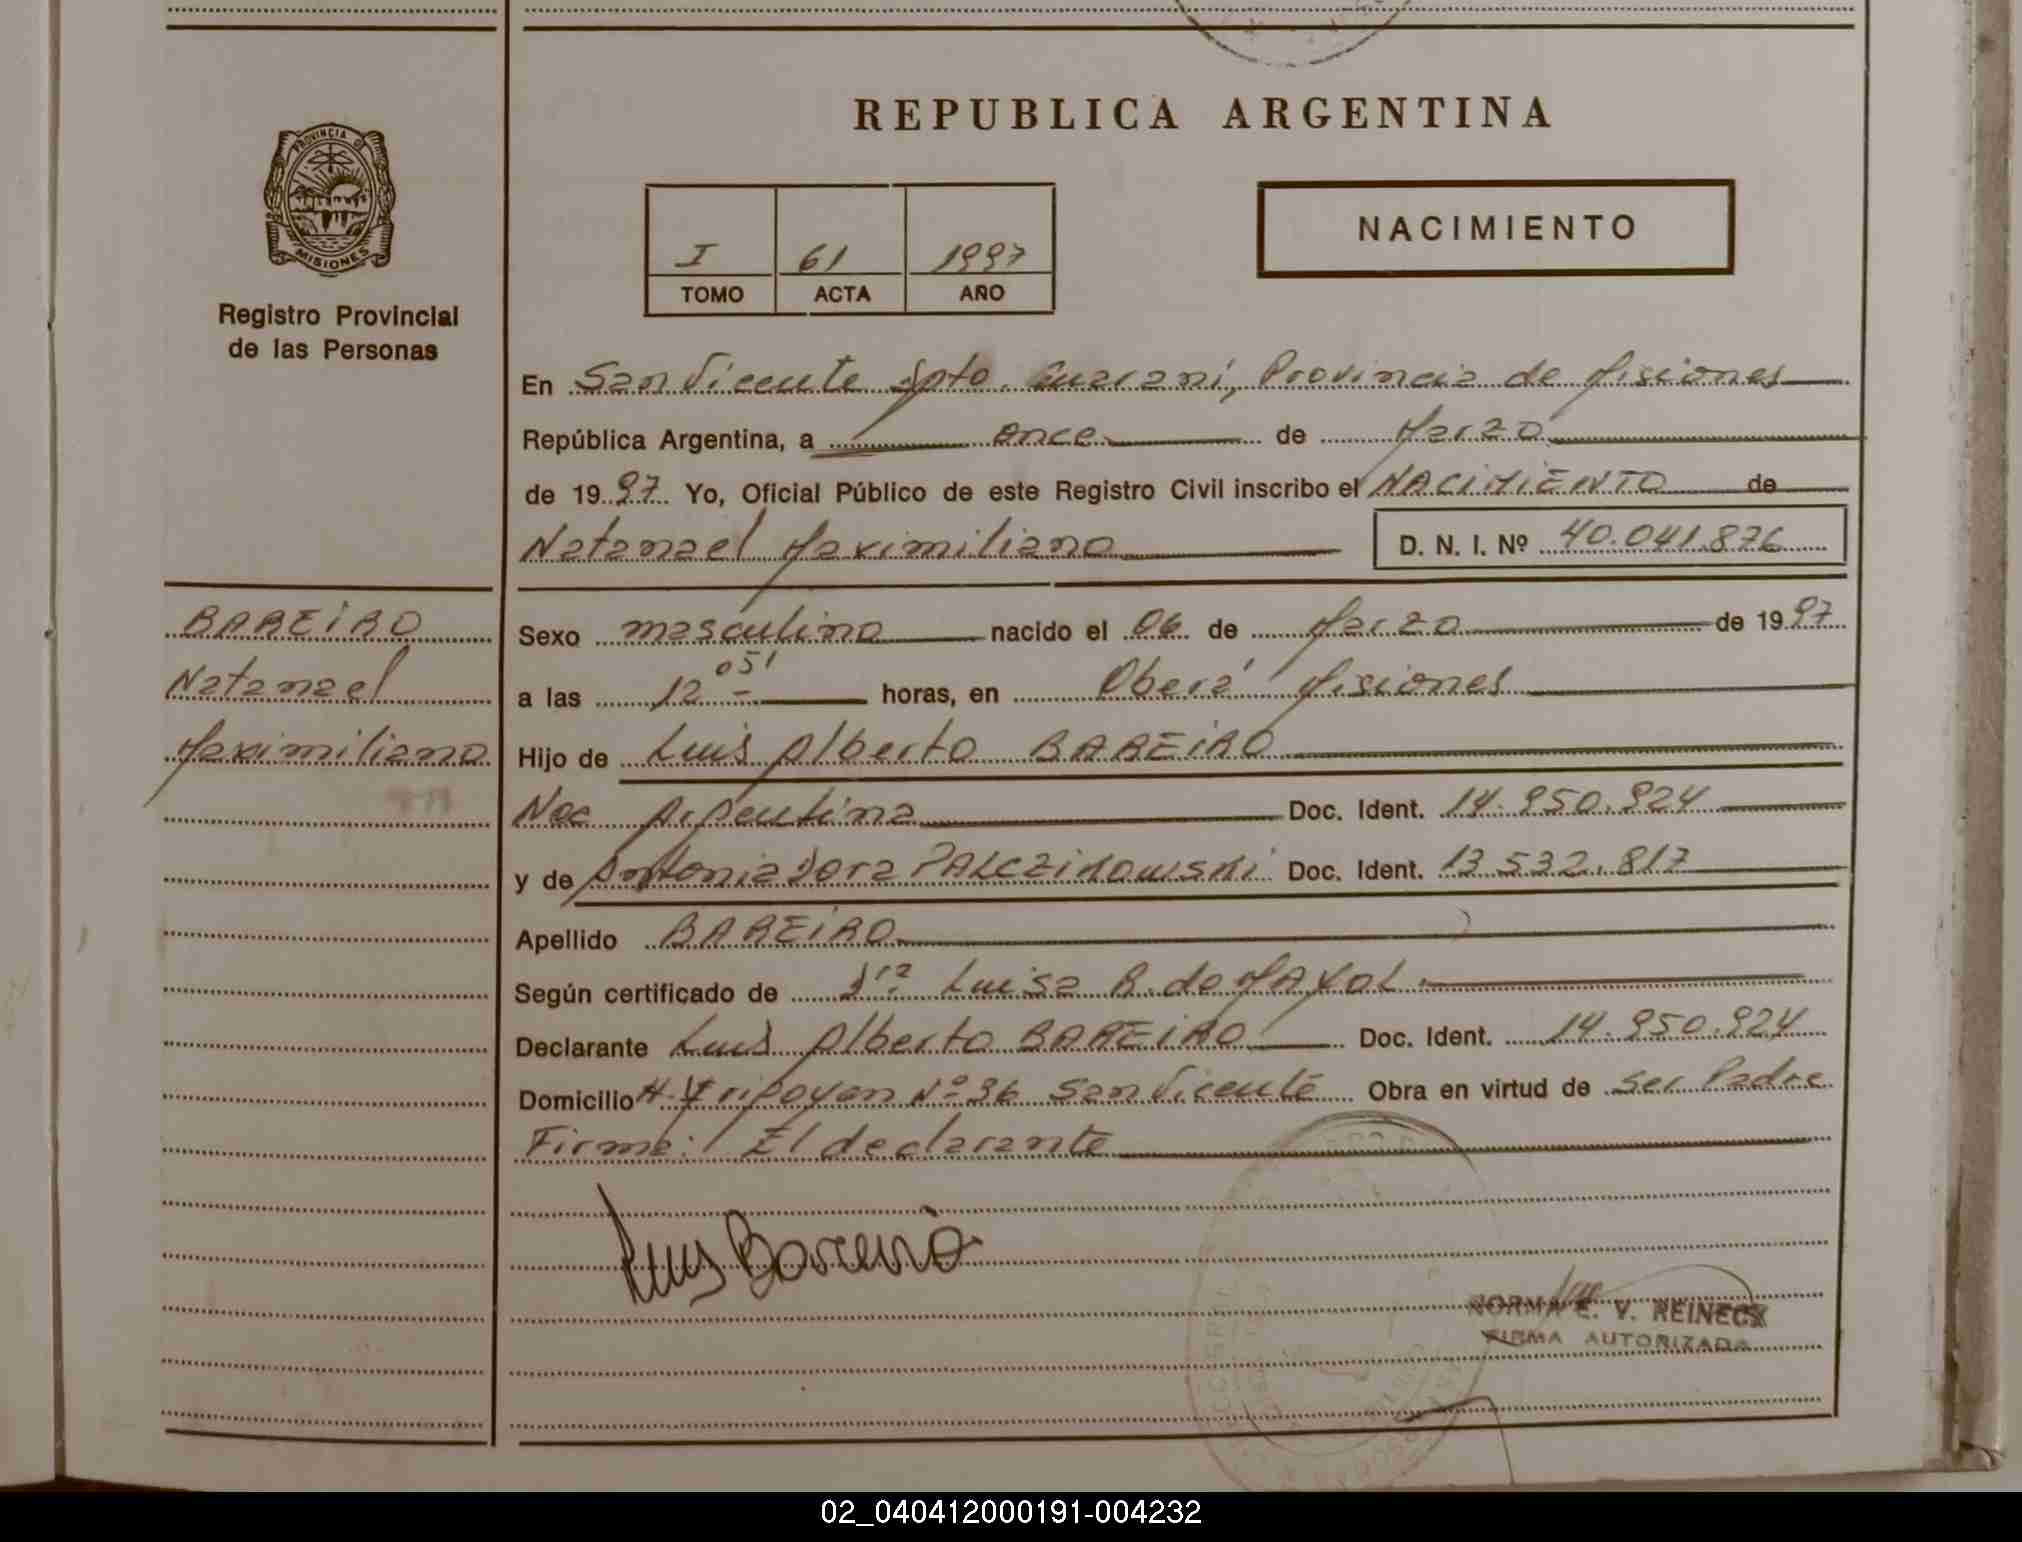 REPUBLICA ARGENTINA
PROVINCIA DE
MISIONES
Registro Provincial
de las Personas
I 61 1997
TOMO ACTA AÑO
NACIMIENTO
En San Vicente Dpto. Guaraní, Provincia de Misiones
República Argentina, a once de Marzo
de 1997 Yo, Oficial Público de este Registro Civil inscribo el NACIMIENTO de
Natanael Maximiliano D. N. I. Nº 40.041.876
BAREIRO
Natanael
Maximiliano
Sexo masculino nacido el 06 de Marzo de 1997
a las 12 05' horas, en Oberá Misiones
Hijo de Luis Alberto BAREIRO
Nac Argentina Doc. Ident. 14.950.924
y de Antonia Dora PALCZIKOWSKI Doc. Ident. 13.532.817
Apellido BAREIRO
Según certificado de Dra Luisa R. de MAYOL
Declarante Luis Alberto BAREIRO Doc. Ident. 14.950.924
Domicilio H. Yrigoyen Nº 36 San Vicente Obra en virtud de ser Padre
Firma: El declarante
Luis Bareiro
NORMA E. V. REINECK
FIRMA AUTORIZADA
02_040412000191-004232